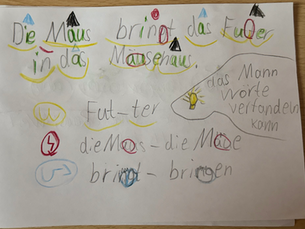 Die Maus bringt das Futter
in das Mäusehaus.
das Mann
Wörte
verlandeln
kann
Fut-ter
die Maus - die Mäuse
bringt - bringen